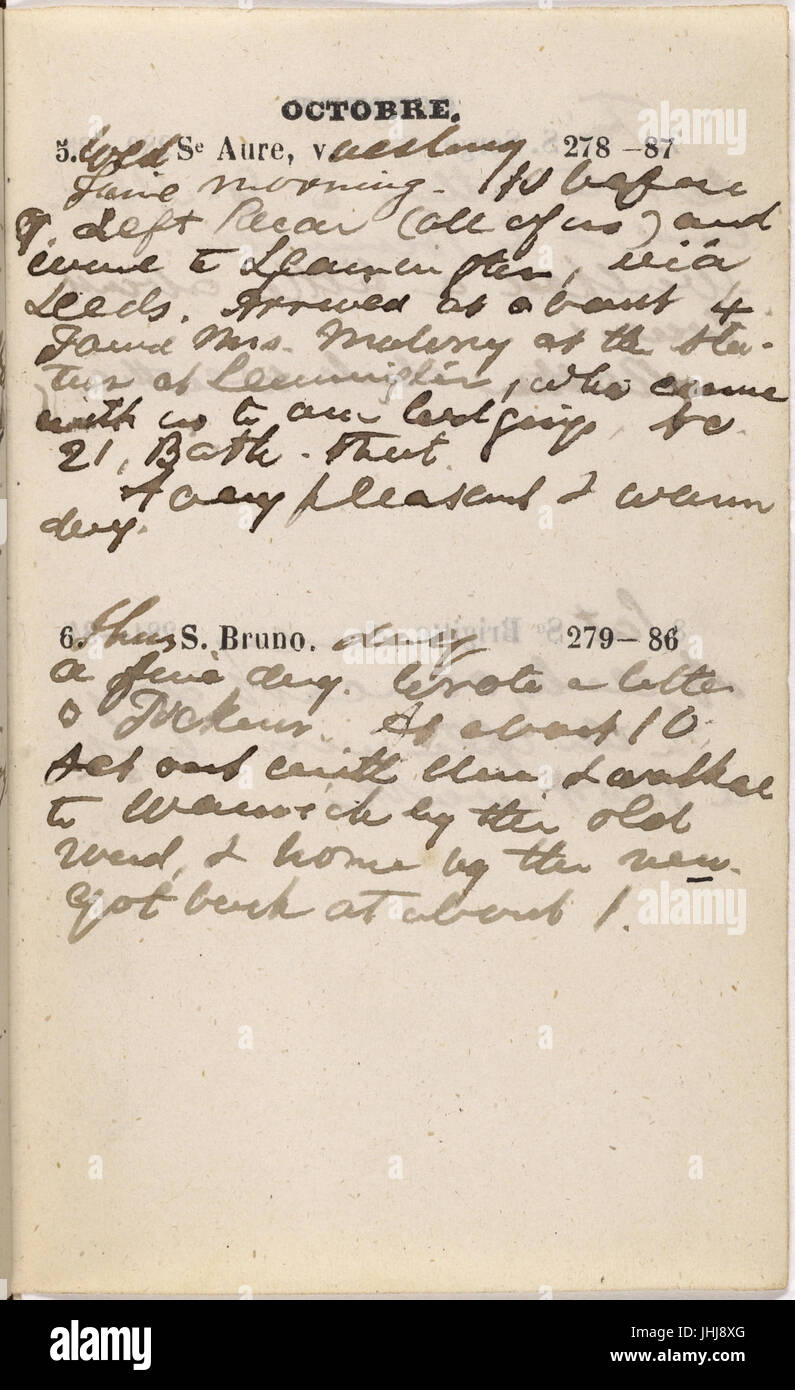 OCTOBRE.
5. Wed Se Aure, v nesday 278–87
Fine morning. 10 before
9 left Redcar (all of us) and
went to Leamington, via
Leeds. Arrived at about 4.
Found Mrs. Maloney at the sta-
tion at Leamington, who came
with us to our lodgings, to
21, Bath-Street.
A very pleasant & warm
day.
6. Thurs S. Bruno. day 279–86
A fine day. Wrote a letter
to Tickeur. At about 10
set out with Una & walked
to Warwick by the old
road, & home by the new.
Got back at about 1.
alamy
Image ID: JHJ8XG
www.alamy.com